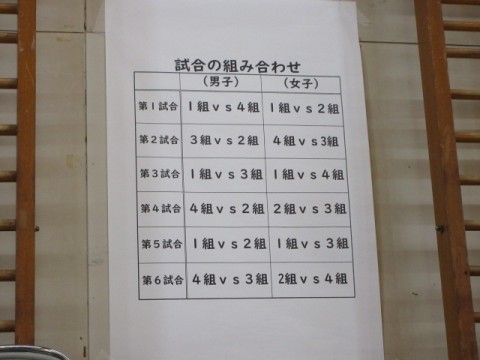 試合の組み合わせ
(男子) (女子)
第1試合 1組vs4組 1組vs2組
第2試合 3組vs2組 4組vs3組
第3試合 1組vs3組 1組vs4組
第4試合 4組vs2組 2組vs3組
第5試合 1組vs2組 1組vs3組
第6試合 4組vs3組 2組vs4組